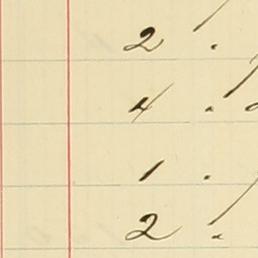 2 .
4 .
1 .
2 .